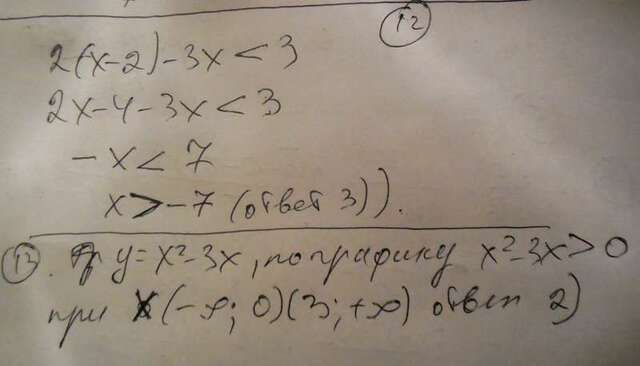 12
2(x-2)-3x<3
2x-4-3x<3
-x<7
x>-7 (ответ 3)).
13. y=x²-3x, по графику x²-3x>0
при x (-∞; 0)(3; +∞) ответ 2)